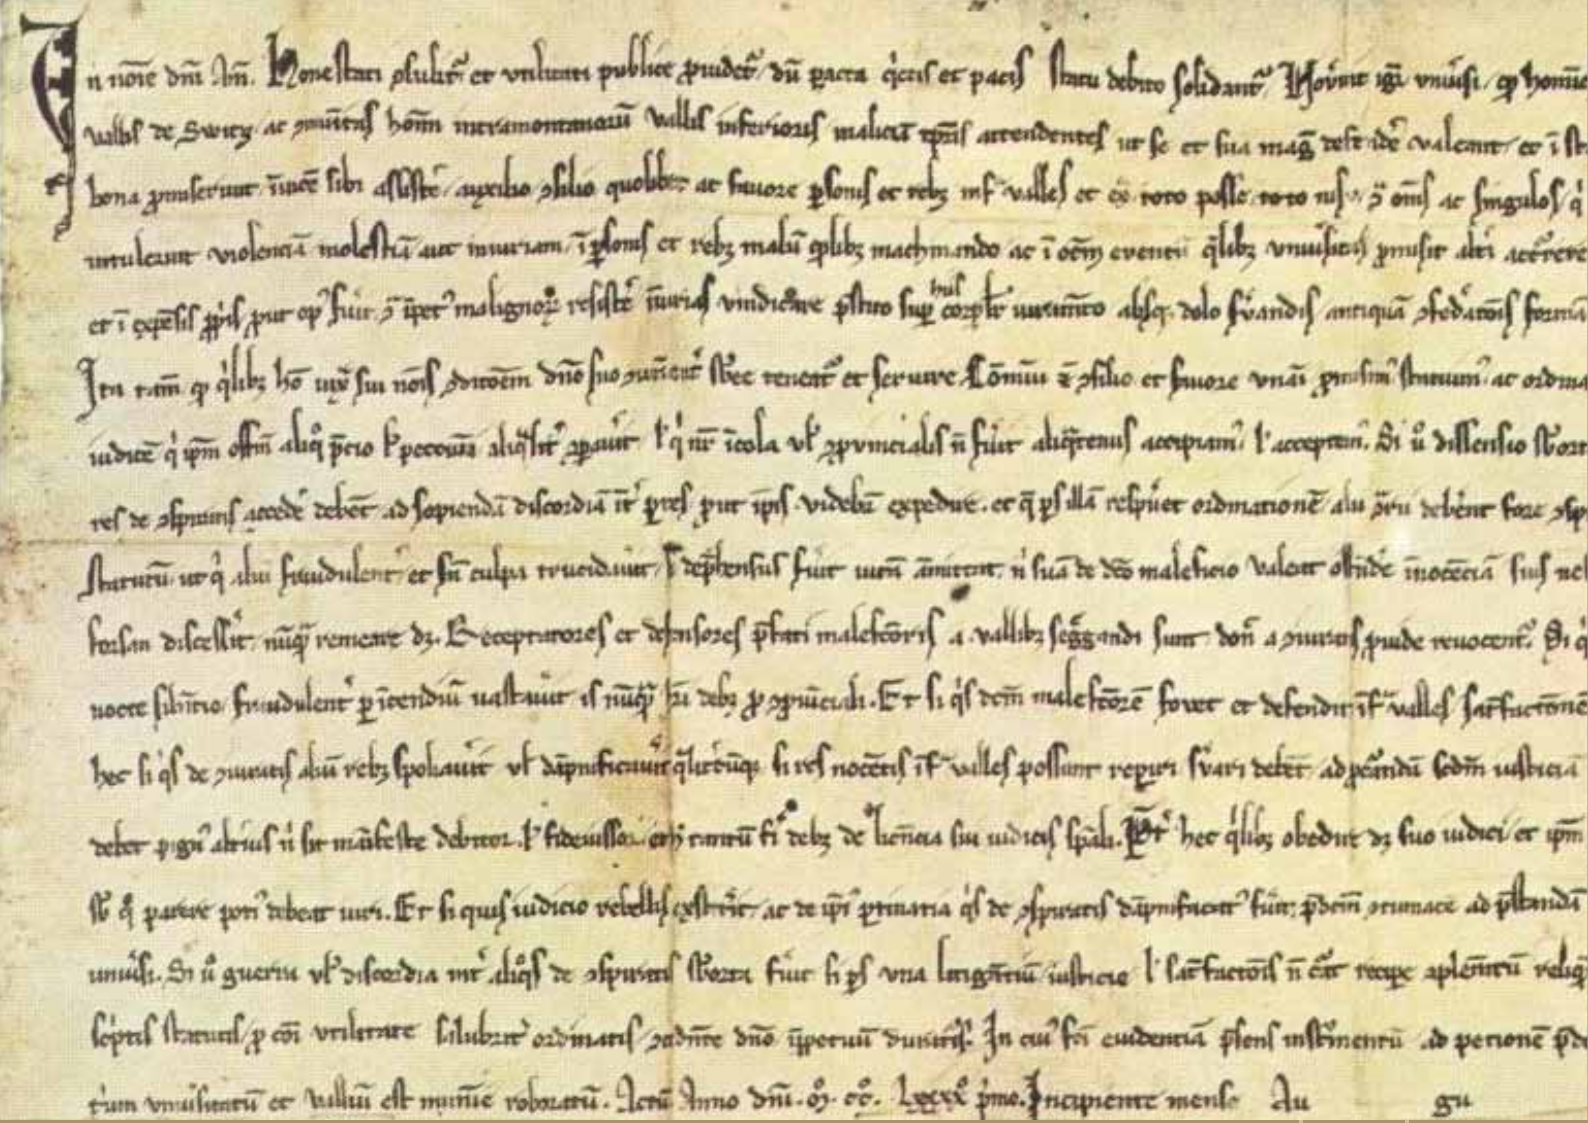 In noīe dn̄i Am̄. Honestati ꝯsulit᷑ et utilitati publice ꝓvidet᷑ dū pacta qⁱetis et pacis statu debito solidant᷑. Nov̄int igr̄ univ̄si, qꝫ homīes
vallis de Switz ac ꝯmūitas hoīm intramontanoꝝ vallis inferioris maliciā tp̄ris attendentes ut se et sua magꝭ defendē valeant et ī st
bona ꝓmiserunt īvicē sibi assistē auxilio ꝯsilio quolibꝫ ac favore ꝑsonis et rebꝫ infᵃ valles et exᵃ toto posse toto nisu ꝯᵃ om̄s ac singulos qⁱ
intulerint violenciā molestiā aut iniuriam ī ꝑsonis et rebꝫ malū qᵒdlibꝫ machinando ac ī om̄em eventū qⁱlibꝫ univ̄sitas ꝓmisit alt̄i accurrere
et ī expēsis ꝓpⁱis ꝓut opꝰ fūit ꝯᵃ īpetꝰ malignoꝝ resistē īiurias vindicare p̄stito sup̄ hiis corpalit̄ iuramēto absqꝫ dolo s̄vandis antiquā ꝯfed̄ationis formā
Ita tam̄ qꝫ qⁱlibꝫ hō iuxᵃ sui noīs ꝯditōem dn̄o suo ꝯveniēt̄ sb̄esse teneat᷑ et servire. Cōmuni ē ꝯsilio et favore unāi ꝓmisimꝰ statuimꝰ ac ordina
iudicē qⁱ ip̄m officiū aliqᵒ p̄cio vl̄ peccunia aliqᵃlit̄ ꝯpav̄it vl̄ qⁱ nr̄ īcola vl̄ ꝯpvincialis n̄ fūit aliqᵃtenus accipiamꝰ vl̄ acceptemꝰ. Si v̄o dissensio sb̄ort
res de ꝯspiratis accedē debēt ad sopiendā discordiā int̄ ꝑtes ꝓut ip̄is videbit᷑ expedire et q̄ ꝑs illā respūet ordinationē alii ꝯᵃrii deb̄ent fore ꝯsp
statutū ut qⁱ aliū fraudulent̄ et sn̄ culpa trucidav̄it si dep̄hensus fūit vitā āmittat nⁱ suā de dc̄o maleficio valeat ostendē īnocēciā suis ne
forsan discesserit nūqᵃ remeare dꝫ. Receptatores et defensores p̄fati malefc̄oris a vallibꝫ seḡgandi sunt donc̄ a ꝯiuratis ꝓvide revocent᷑. Si qⁱ
nocte silētio fraudulent̄ ꝑ īcendiū vastav̄it is nūqᵃ hr̄i debꝫ ꝓ ꝯpvīciali. Et si qⁱs dc̄m malefc̄orē fovet et defendit infᵃ valles satisfactionē
hec si qⁱs de ꝯiuratis aliū rebꝫ spoliav̄it vl̄ dāpnificav̄it qᵃlit̄cūqꝫ si res nocētis infᵃ valles possunt reꝑiri s̄vari debēt ad ꝓcᵃandā scdm̄ iusticiā
debet pignꝰ altⁱius nⁱ sit māifeste debitor vl̄ fideiussor et hᵒ tantū fi̇ debꝫ de licēcia sui iudicis spāli. Pt̄ hec qⁱlibꝫ obedire dꝫ suo iudici et ip̄m
sb̄ qᵒ parere potiꝰ debeat iuri. Et si quis iudicio rebellis exstit̄it ac de ip̄iꝰ ꝑtinatia qⁱs de ꝯspiratis dāpnificatꝰ fūit p̄dc̄m ꝯtumacē ad p̄standā
univ̄si. Si v̄o guerra vl̄ discordia int̄ aliqᵒs de ꝯspiratis sb̄orta fūit si ꝑs una litigātiū iusticie vl̄ satisfactōis n̄ cᵃt reciꝑe ꝯplem̄tū reliqᵃ
scⁱptis statutis ꝓ cōi utilitate salubrit̄ ordinatis ꝯcedēte dn̄o īꝑpetuū duraturis. In cuiꝰ fc̄i evidentiā p̄sens instrumentū ad petionē p̄dc
t̄um univ̄sitatū et valliū est munīie roboratū. Actū Anno dn̄i. mᵒ. ccᵒ. Lxxxxᵒ pⁱmo. Incipiente mense Au gu